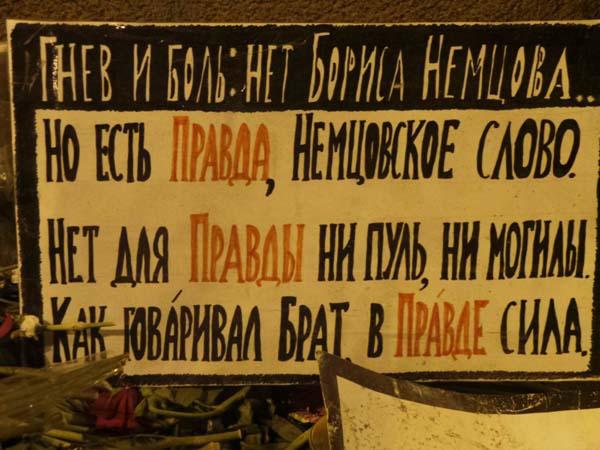 Гнев и боль: нет Бориса Немцова..
Но есть Правда, Немцовское слово.
Нет для Правды ни пуль, ни могилы.
Как гова́ривал Брат, в Пра́вде сила.